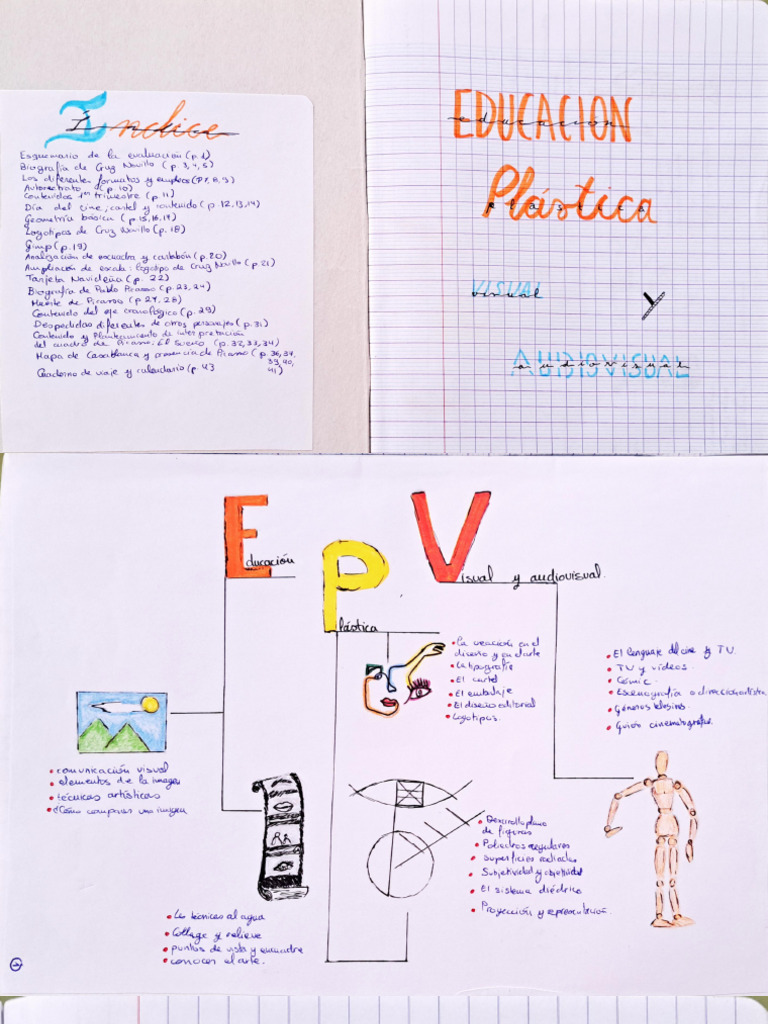 Índice
Esquemario de la evaluación (p.1)
Biografía de Cruz Novillo (p. 3, 4, 5)
Los diferentes formatos y empleos (p. 7, 8, 9)
Autorretrato (p. 10)
Contenidos 1er trimestre (p. 11)
Día del cine, cartel y contenido (p. 12, 13, 14)
Geometría básica (p. 15, 16, 17)
Logotipos de Cruz Novillo (p. 18)
Gimp (p. 19)
Analización de escuadra y cartabón (p. 20)
Ampliación de escala: logotipo de Cruz Novillo (p. 21)
Tarjeta Navideña (p. 22)
Biografía de Pablo Picasso (p. 23, 24)
Mente de Picasso (p. 27, 28)
Contenido del eje cronológico (p. 29)
Despedidas diferentes de otros personajes (p. 31)
Contenido y Planteamiento de interpretación
del cuadro de Picasso: El Sueño (p. 32, 33, 34)
Mapa de Casablanca y presencia de Picasso (p. 36, 37,
39, 40,
Cuaderno de viaje y calendario (p. 43
41)
EDUCACION
educación
Plástica
plástica
VISUAL
visual
Y
AUDIOVISUAL
audiovisual
Educación
Plástica
Visual y audiovisual
• comunicación visual
• elementos de la imagen
• técnicas artísticas
• ¿Cómo componer una imagen
• Las técnicas al agua
• Collage y relieve
• puntos de vista y encuadre
• conocer el arte.
• La creación en el
diseño y en el arte
• La tipografía
• El cartel
• El embalaje
• El diseño editorial
• Logotipos.
• Desarrollo plano
de figuras
• Poliedros regulares
• Superficies radiadas
• Subjetividad y objetividad
• El sistema diédrico
• Proyección y representación.
• El lenguaje del cine y TV.
• TV y vídeos.
• Cómic.
• Escenografía o direccionalista
• Géneros
• Guión cinematográfico